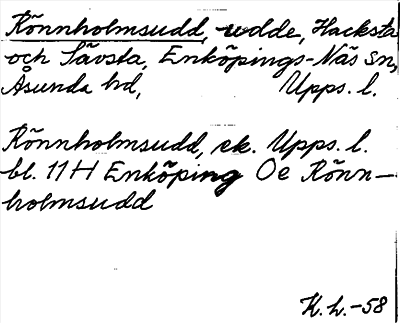 Rönnholmsudd, udde, Hacksta
och Sävsta, Enköpings-Näs sn,
Åsunda hd, Upps. l.
Rönnholmsudd, ek. Upps. l.
bl. 11 H Enköping Oe Rönn-
holmsudd
K. L. -58